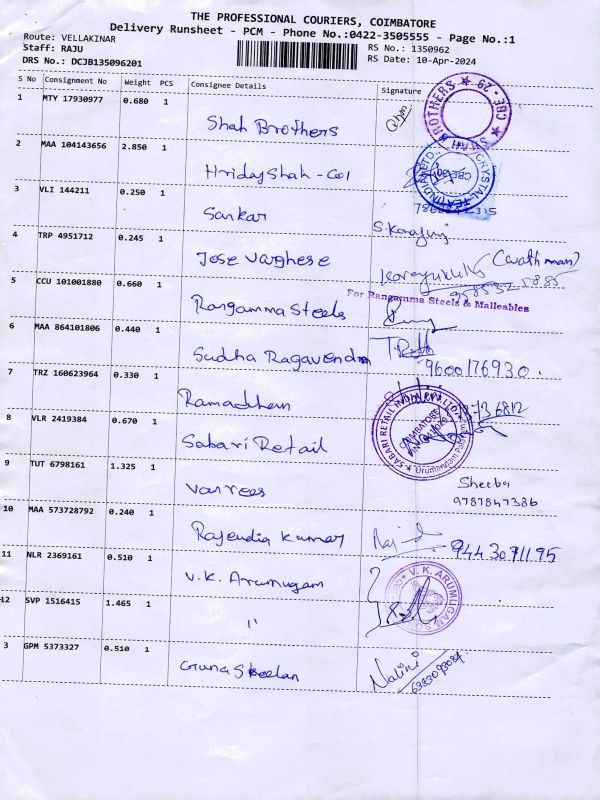 THE PROFESSIONAL COURIERS, COIMBATORE
Delivery Runsheet - PCM - Phone No.:0422-3505555 - Page No.:1
Route: VELLAKINAR
Staff: RAJU
DRS No.: DCJB135096201
RS No.: 1350962
RS Date: 10-Apr-2024
S No Consignment No Weight PCS Consignee Details Signature
1 MTY 17930977 0.680 1
Shah Brothers
BROTHERS ★ CBE - 29 ★ SHAH
2 MAA 104143656 2.850 1
Hriday Shah - Col
CRYSTAL TEA (INDIA) LTD.,
3 VLI 144211 0.250 1
Sankar
4 TRP 4951712 0.245 1
Jose Varghese
5 CCU 101001880 0.660 1
Rangamma Steels
For Rangamma Steels & Malleables
6 MAA 864101806 0.440 1
Sudha Ragavendra
9600176930.
7 TRZ 160623964 0.330 1
Ramadhem
8 VLR 2419384 0.670 1
Sabari Retail
SABARI RETAIL INDIA PVT LTD.
COIMBATORE
9 TUT 6798161 1.325 1
Varrees
Sheeba
9787847386
10 MAA 573728792 0.240 1
Rajendia Kumar
Raj
11 NLR 2369161 0.510 1
V.K. Arumugam
V. K. ARUMUGAM
12 SVP 1516415 1.465 1
"
3 GPM 5373327 0.510 1
Guna Skeelan
Nalini